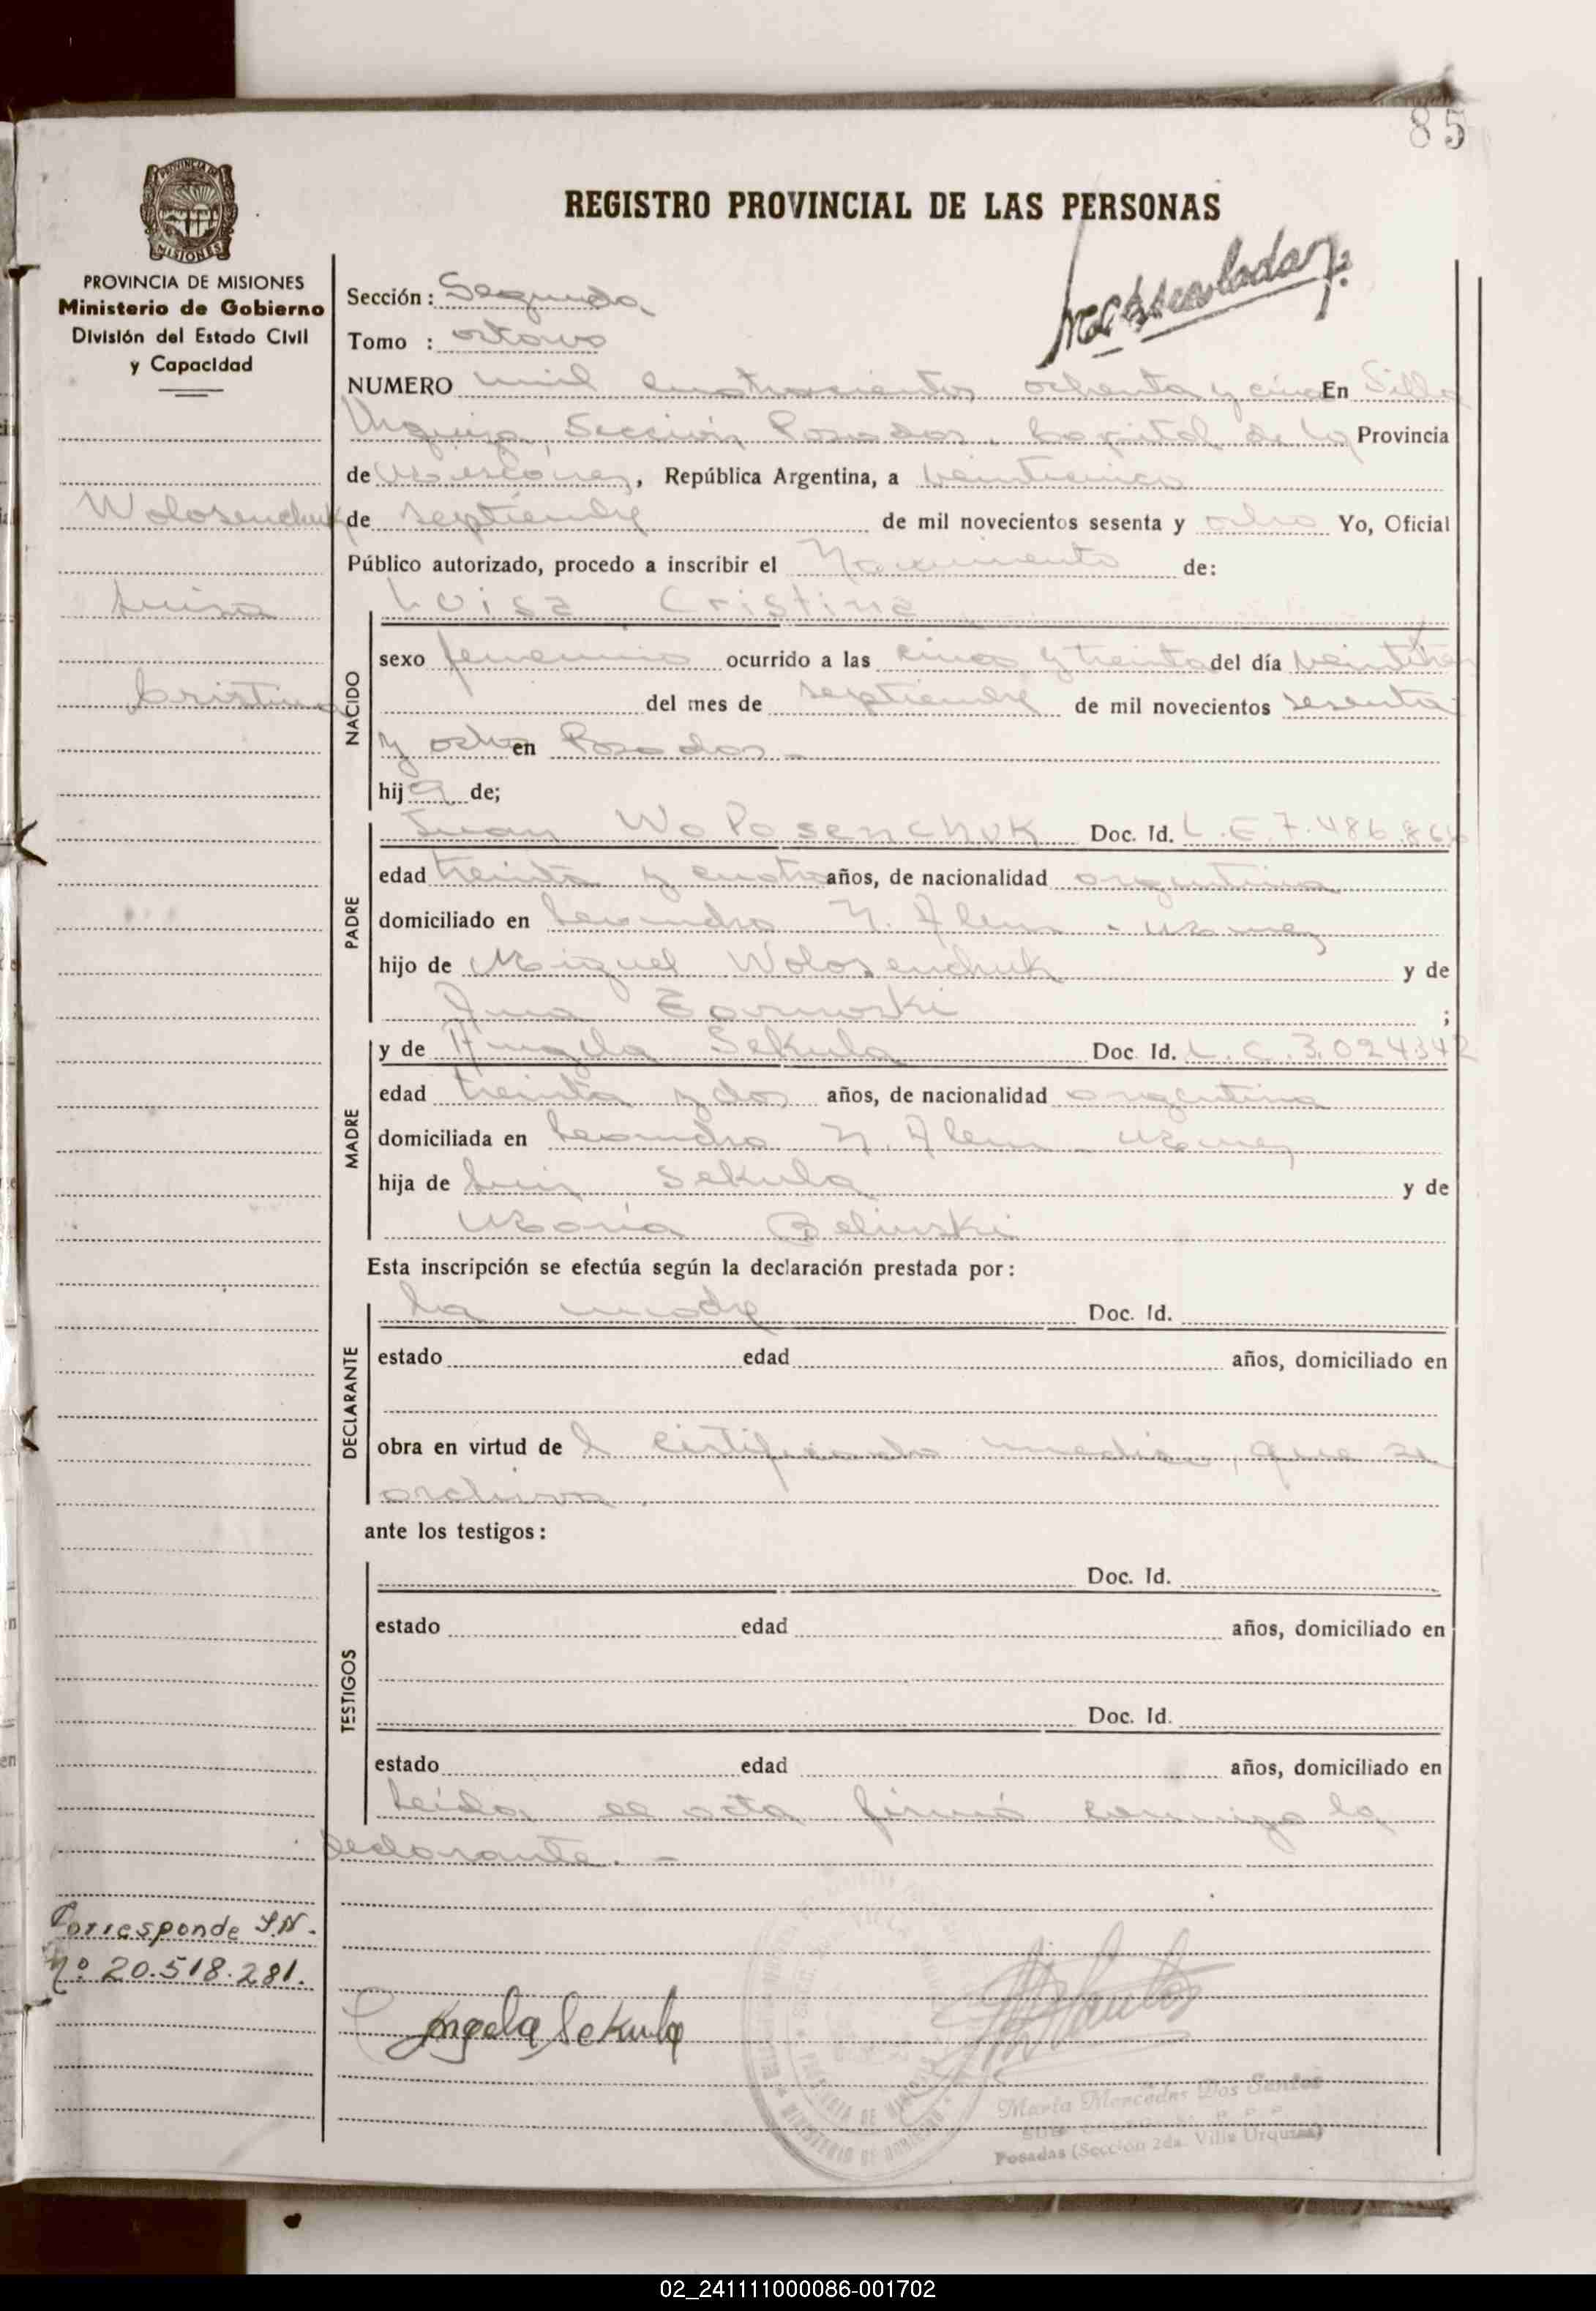 85
PROVINCIA DE MISIONES
MISIONES
PROVINCIA DE MISIONES
Ministerio de Gobierno
División del Estado Civil
y Capacidad
REGISTRO PROVINCIAL DE LAS PERSONAS
Sección: Segunda
Tomo : octavo
NUMERO mil cuatrocientos ochenta y cinco En Villa
Urquiza, Sección Posadas, Capital de la Provincia
de Misiones, República Argentina, a veinticinco
Wolosenchuk
de septiembre de mil novecientos sesenta y ocho Yo, Oficial
Público autorizado, procedo a inscribir el Nacimiento de:
Luisa
Luisa Cristina
NACIDO
sexo femenino ocurrido a las cinco y treinta del día veintitres
Cristina
del mes de septiembre de mil novecientos sesenta
y ocho en Posadas.-
hija de;
PADRE
Juan Wolosenchuk Doc. Id. L.E.7.486.866
edad treinta y cuatro años, de nacionalidad argentina
domiciliado en Leandro N. Alem - Mnes
hijo de Miguel Wolosenchuk y de
Ana ;
MADRE
y de Angela Sekula Doc. Id. L.C.3.024.342
edad treinta y dos años, de nacionalidad argentina
domiciliada en Leandro N. Alem - Mnes
hija de Luis Sekula y de
María Belinski
Esta inscripción se efectúa según la declaración prestada por:
DECLARANTE
la madre Doc. Id.
estado edad años, domiciliado en
obra en virtud del certificado medico, que se
archiva.
ante los testigos:
TESTIGOS
Doc. Id.
estado edad años, domiciliado en
Doc. Id.
estado edad años, domiciliado en
Leida el acta firmó conmigo la
declarante.-
Corresponde I.N.
Nº 20.518.281.
Angela Sekula
MINISTERIO DE GOBIERNO
PROVINCIA DE MISIONES
Marta Mercedes Dos Santos
Posadas (Sección 2da. Villa Urquiza)
02_241111000086-001702